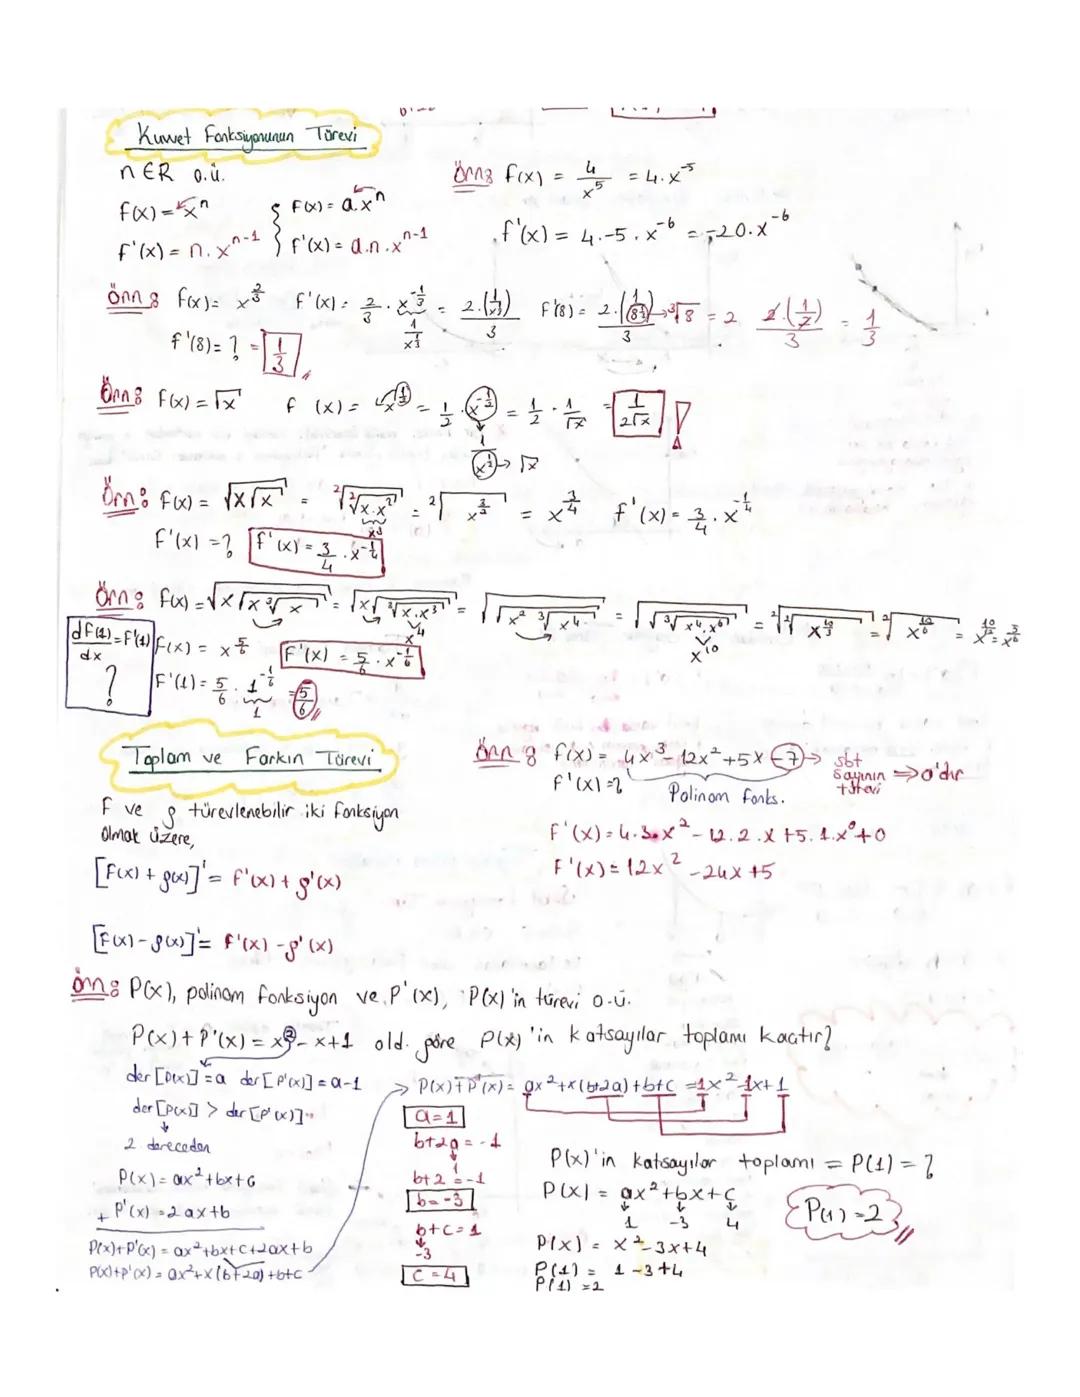 Kuvvet Fonksiyonunun Türevi
n ∈ R o.ü.
f(x) = xⁿ
f'(x) = n.xⁿ⁻¹
f(x) = a.xⁿ
f'(x) = a.n.xⁿ⁻¹
Örn: f(x) = 4/x⁵ = 4.x⁻⁵
f'(x) = 4.-5.x⁻⁶ = -20.x⁻⁶
Örn: f(x) = x^(2/3) f'(x) = 2/3 . x^(-1/3) = 2.(1/x^(1/3))/3 f'(8) = 2.(1/8^(1/3))/3 → ³√8 = 2 2.(1/2)/3 = 1/3
1/x^(1/3)
f'(8) = ? = 1/3
Örn: f(x) = √x f (x) = x^(1/2) = 1/2 . x^(-1/2) = 1/2 . 1/√x = 1/(2√x) !
1/x^(1/2) → √x
Örn: f(x) = √(x√x) = ²√(²√(x.x²)) = ²√(x^(3/2)) = x^(3/4) f'(x) = 3/4 . x^(-1/4)
x³
f'(x) = ? f'(x) = 3/4 . x^(-1/4)
Örn: f(x) = √(x√(x³√x)) = √(x√(³√(x.x³))) = √(√(x² ³√x⁴)) = √(√(³√(x⁴.x⁶))) = ²√(²√(x^(10/3))) = ²√(x^(10/6)) = x^(10/12) = x^(5/6)
x⁴
x¹⁰
df(1)/dx = f'(1) ?
f(x) = x^(5/6) f'(x) = 5/6 . x^(-1/6)
f'(1) = 5/6 . 1^(-1/6) = 5/6
1
Toplam ve Farkın Türevi
f ve g türevlenebilir iki fonksiyon
olmak üzere,
[f(x) + g(x)]' = f'(x) + g'(x)
[f(x) - g(x)]' = f'(x) - g'(x)
Örn: f(x) = 4x³ - 12x² + 5x - 7 → sbt sayının türevi ⇒ 0'dır
f'(x) = ? Polinom fonks.
f'(x) = 4.3.x² - 12.2.x + 5.1.x⁰ + 0
f'(x) = 12x² - 24x + 5
Örn: P(x), polinom fonksiyon ve P'(x), P(x)'in türevi o.ü.
P(x) + P'(x) = x² - x + 1 old. göre P(x)'in katsayılar toplamı kaçtır?
der[P(x)] = a der[P'(x)] = a-1
der[P(x)] > der[P'(x)]
2 dereceden
P(x) = ax² + bx + c
+ P'(x) = 2ax + b
P(x) + P'(x) = ax² + bx + c + 2ax + b
P(x) + P'(x) = ax² + x(b+2a) + b+c
→ P(x) + P'(x) = ax² + x(b+2a) + b+c = 1x² - 1x + 1
a = 1
b + 2a = -1
1
b + 2 = -1
b = -3
b + c = 1
-3
c = 4
P(x)'in katsayılar toplamı = P(1) = ?
P(x) = ax² + bx + c
1 -3 4
P(x) = x² - 3x + 4
P(1) = 1 - 3 + 4
P(1) = 2
P(1) = 2